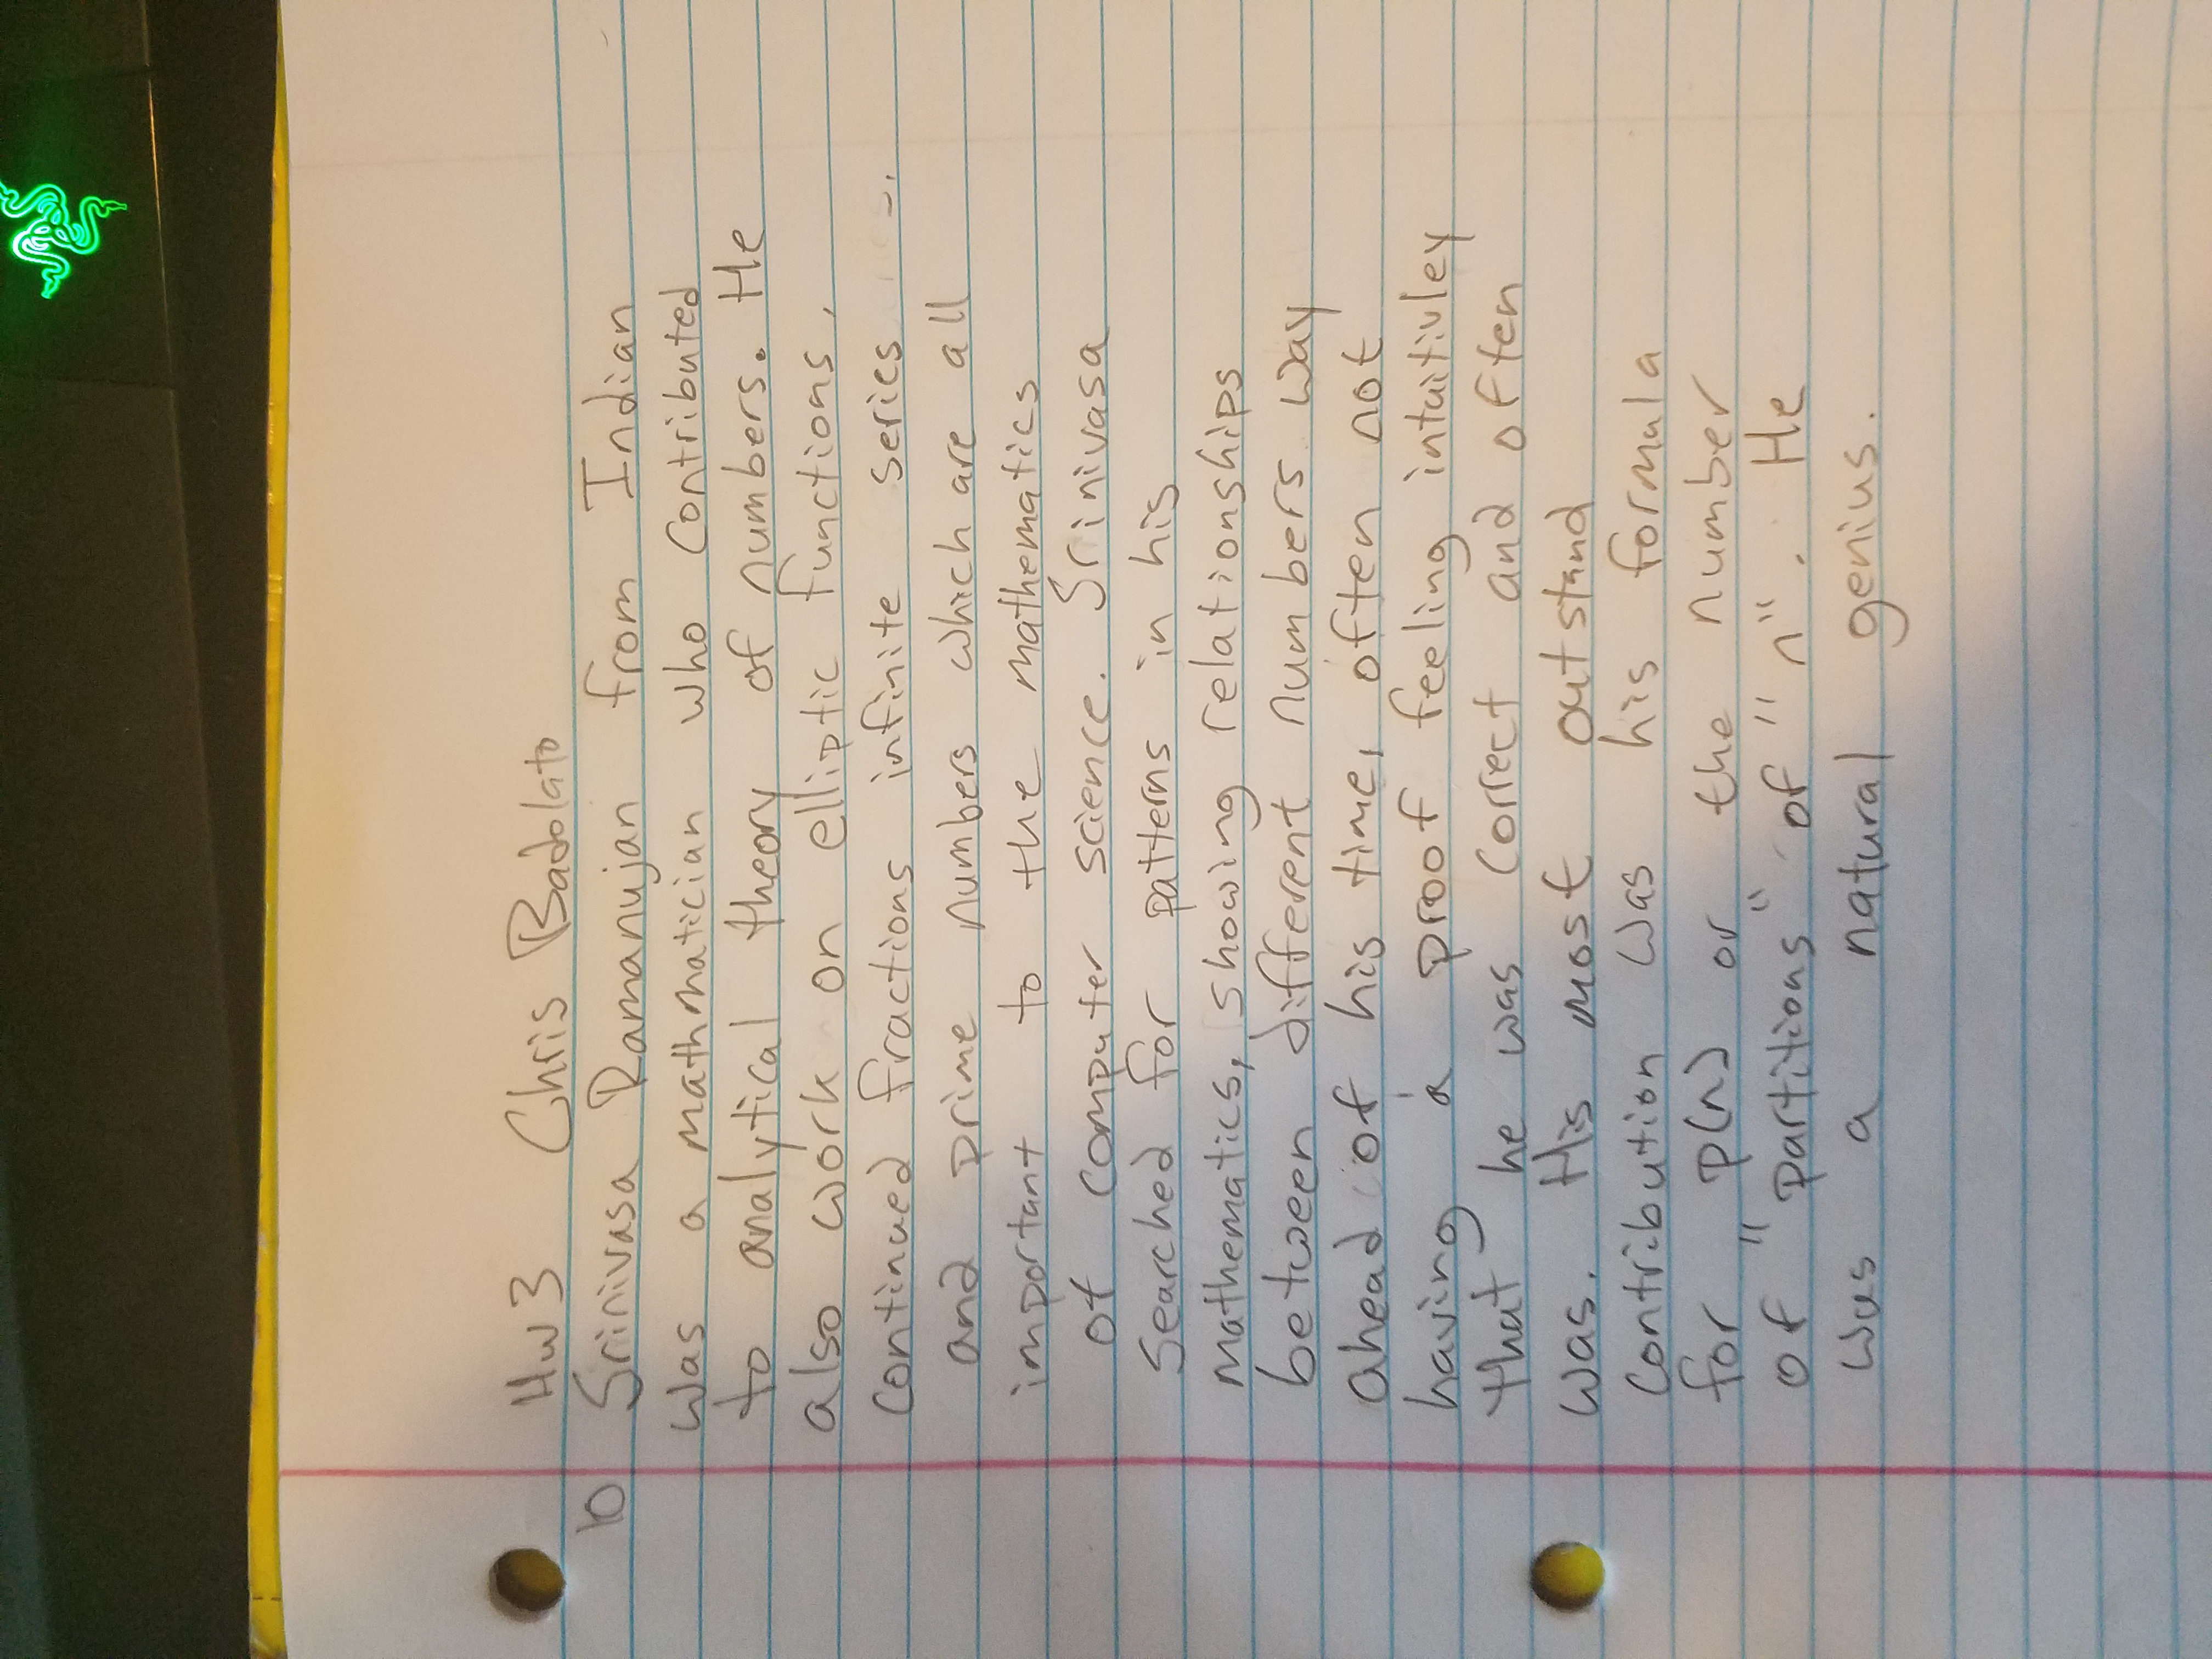 Hw3 Chris Badolato
10 Srinivasa Ramanujan from Indian
was a mathmatician who contributed
to analytical theory of numbers. He
also work on elliptic functions,
continued fractions infinite series
and prime numbers which are all
important to the mathematics
of computer science. Srinivasa
searched for patterns in his
mathematics, showing relationships
between different numbers way
ahead of his time, often not
having a proof feeling intuitivley
that he was correct and often
was. His most outstand
contribution was his formula
for p(n) or the number
of "partitions" of "n". He
was a natural genius.